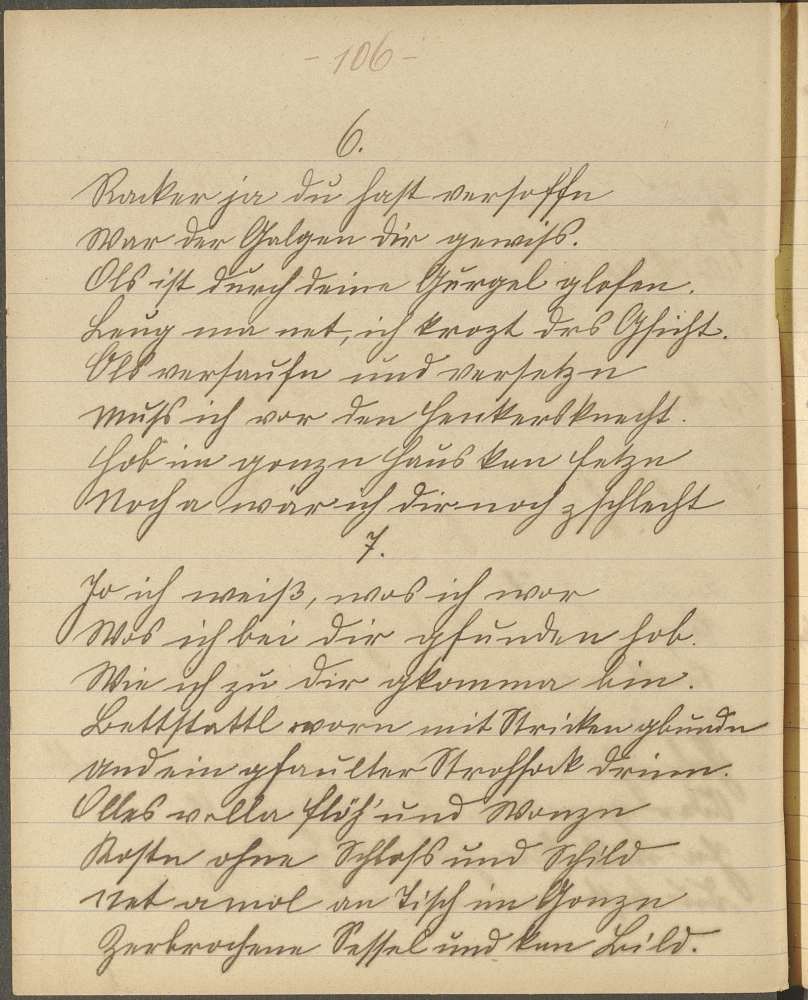 - 106 -
6.
Racker ja du hast versoffn
War der Galgen dir gewiss.
Ols ist durch deine Gurgel glofen.
Leug ma net, ich krozt drs Gsicht.
Ols versaufn und versetzn
Muss ich vor den Henkersknecht.
Hob im gonzn Haus kan Fetzn
Noch a wär ich dir noch zschlecht
7.
Jo ich weiß, wos ich wor
Wos ich bei dir gfunden hob.
Wie ich zu dir gkomma bin.
Bettstattl worn mit Stricken gbundn
Und ein gfaulter Strohsack drinn.
Olles volla Flöh' und Wonzn
Kostn ohne Schloss und Schild
Net amol an Tisch im Gonzn
Zerbrochene Sessel und kan Bild.